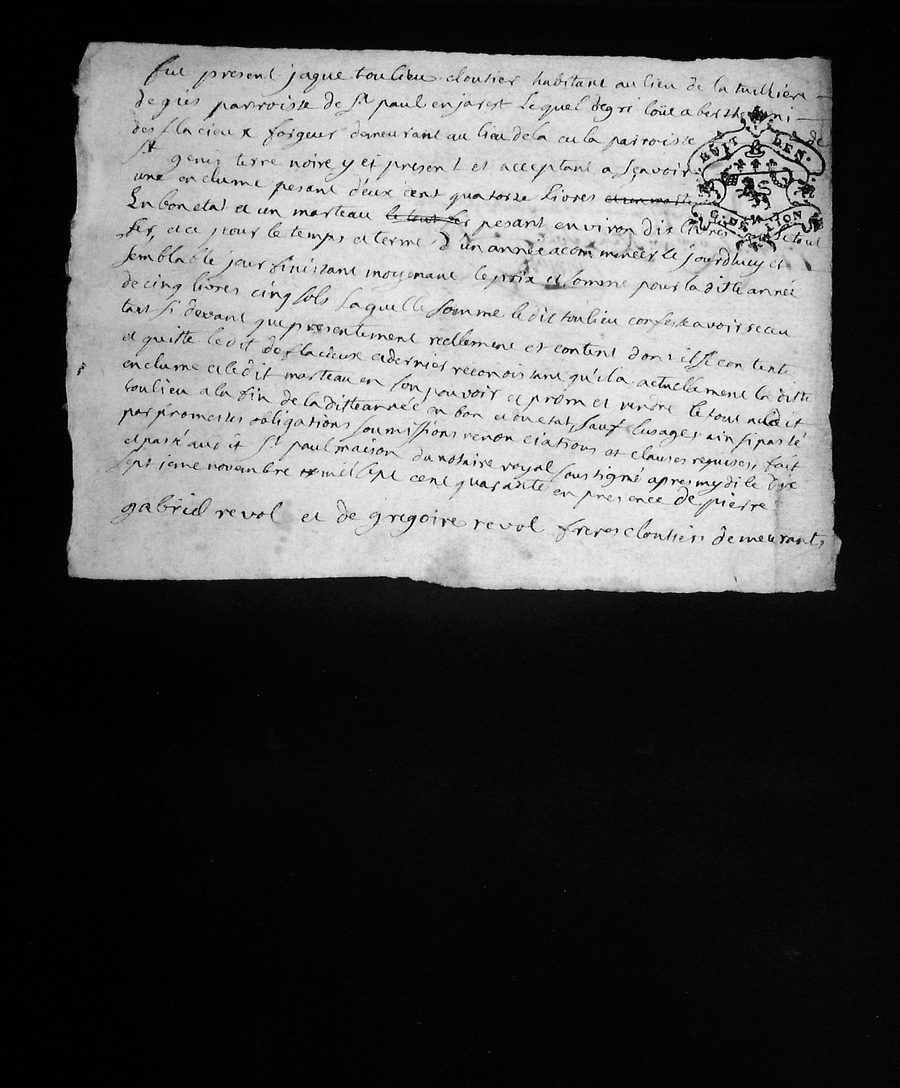 fut present jaque toulieu cloutier habitant au lieu de la
de gies parroisse de St paul en jarest lequel degré loüe a
des flacieux forgeur demeurant au lieu de la cula parroisse de
St genis terre noire y et present et acceptant a sçavoir
une enclume pesant deux cent quatorze livres et un
En bon etat et un marteau le tout pesant environ dix livres tout
fer, et ce pour le temps et terme d'un année a commencer le jourdhuy et
semblable jour finissant moyenant le prix et somme pour la ditte année
de cinq livres cinq sols laquelle somme le dit toulieu confesse avoir receu
tant si devant que presentement reellement et content dont isse contente
et quitte le dit de flacieux et dernier reconoissant qu'il a actuellement la ditte
enclume et le dit marteau en son pouvoir et prom et rendre le tout au dit
toulieu a la fin de la ditte année en bon et du etat, sauf l'usage, ainsi passé
par promesses obligations soumissions renonciations et clauses requises, fait
et passé audit St paul maison du notaire royal soussigné apres mydi le dix
septieme novembre mil sept cent quarante en presence de pierre
gabriel revol et de gregoire revol freres cloutiers demeurants
HUIT DEN.
G. DE LION